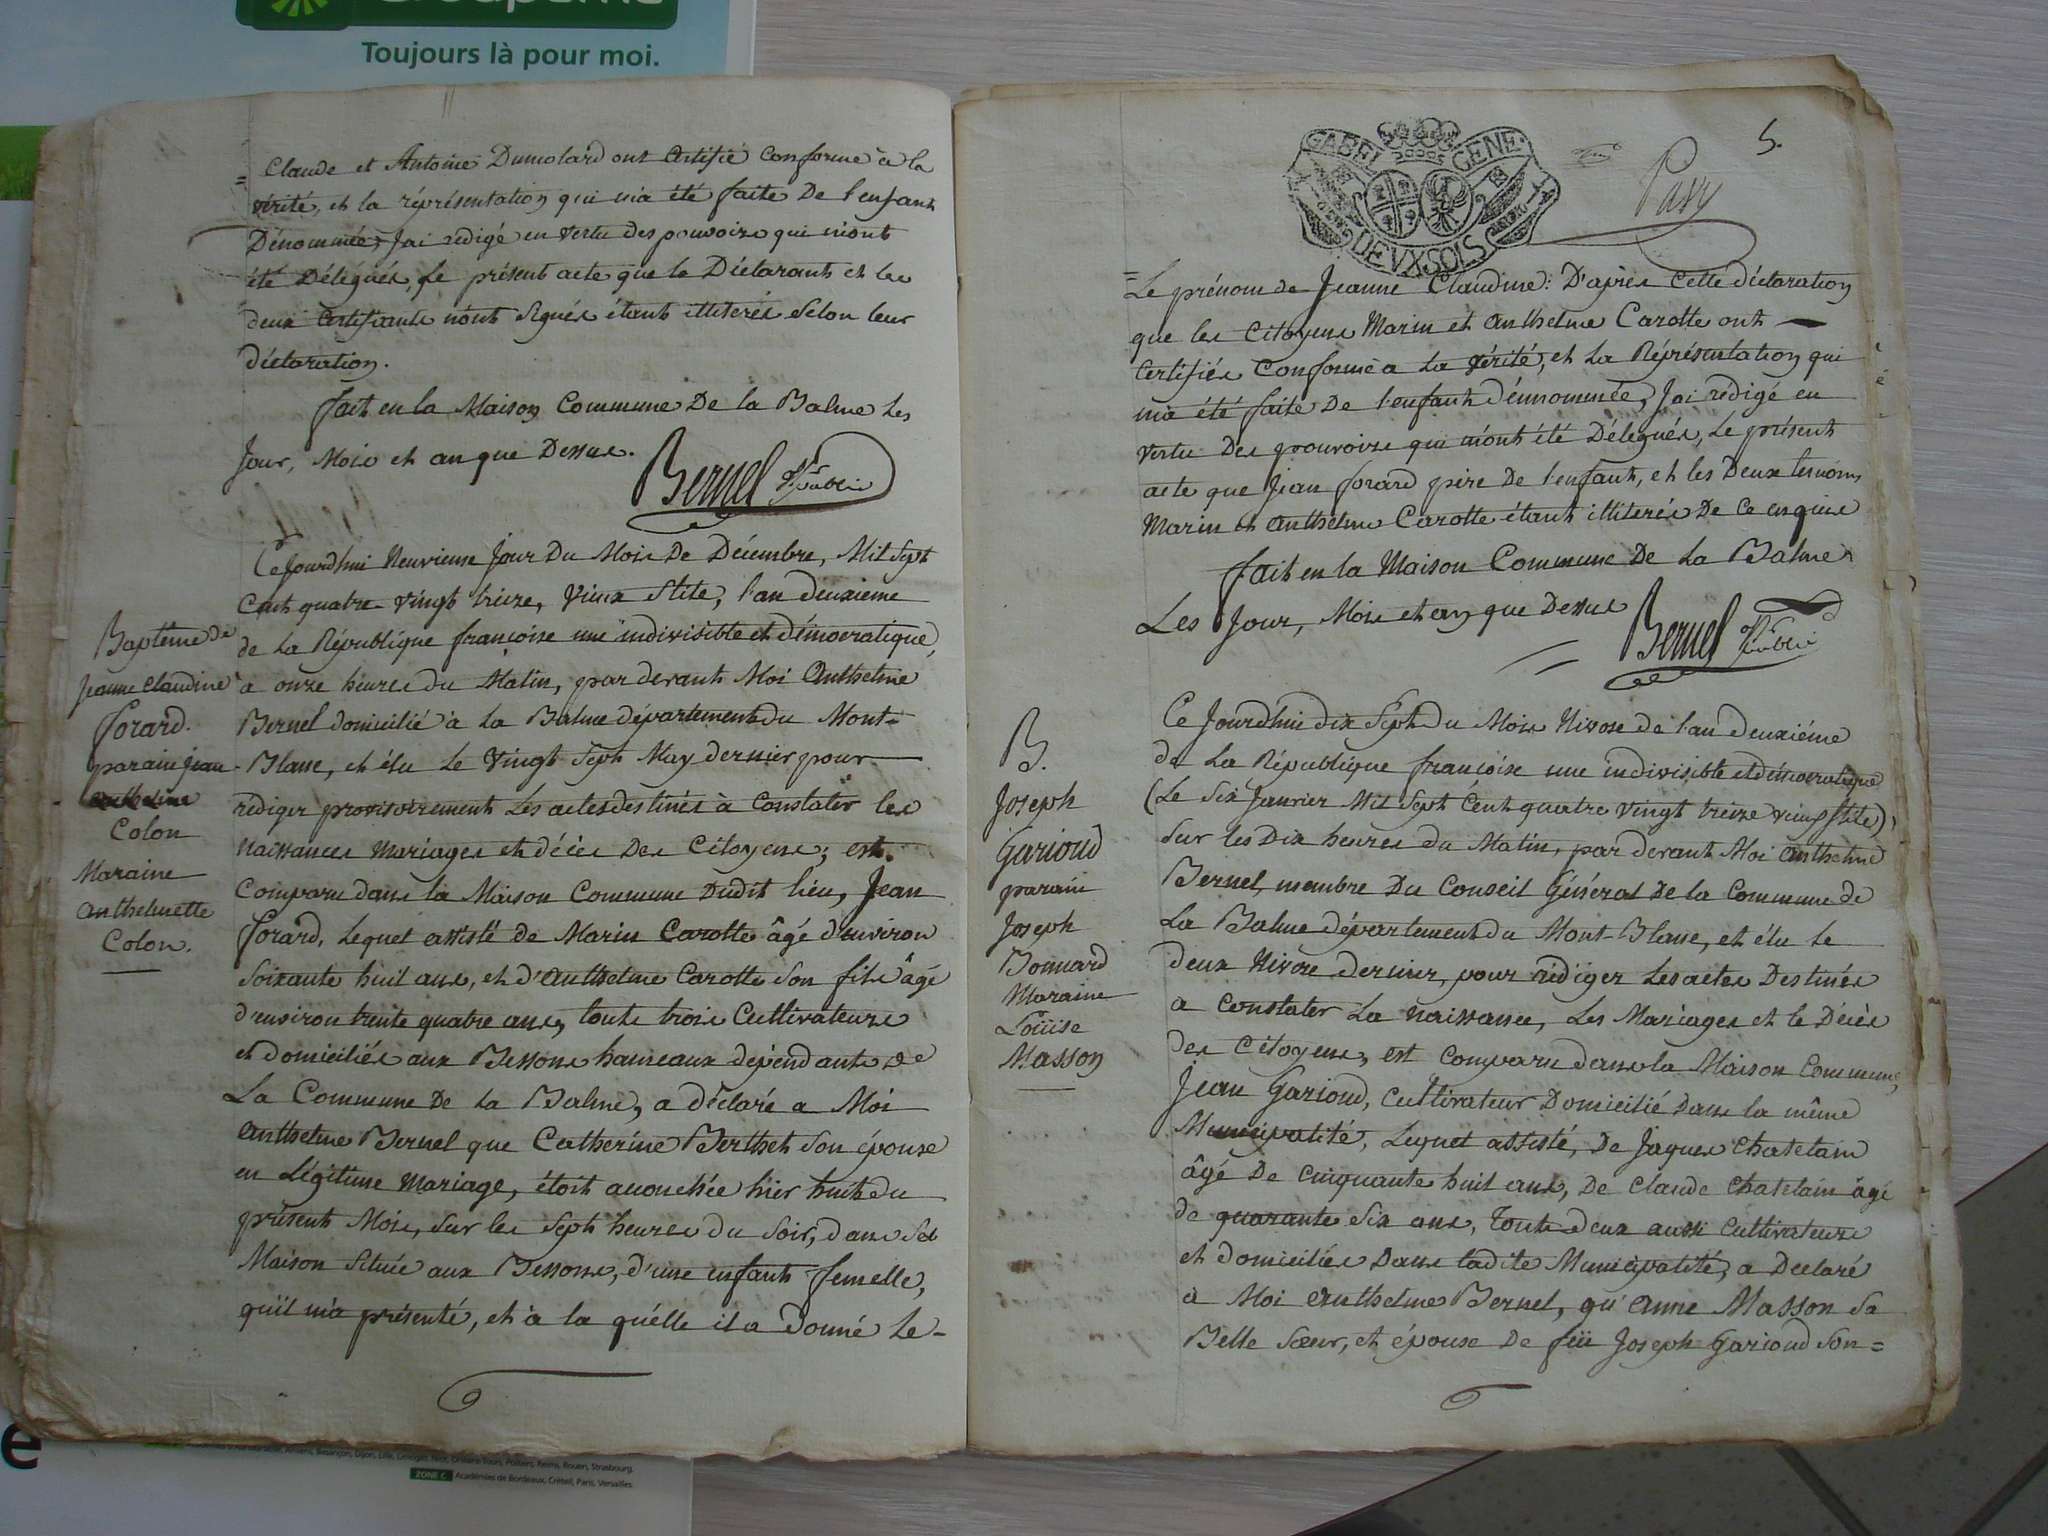 Groupama
Toujours là pour moi.
Claude et Antoine Dumolard ont Certifié conforme à la
vérité, et la réprésentation qui m'a été faite De l'enfant
Dénommée, J'ai rédigé en vertu des pouvoirs qui m'ont
été Délégués, Le présent acte que le Déclarant et les
deux Certifiants n'ont Signés étant illiterés Selon leur
déclaration.
fait en la Maison Commune De la Balme Les
Jour, Mois et an que Dessus.
Bernel Off. public
Ce Jourd'hui Neuvieme Jour Du Mois De Décembre, Mil Sept
Cent quatre-vingt treize, vieux Stile, l'an deuxieme
de La République françoise une indivisible et démocratique,
a onze heures du Matin, par devant Moi Anthelme
Bernel domicilié à La Balme département du Mont-
Blanc, et élu Le vingt Sept May dernier pour
rédiger provisoirement Les actes destinés à Constater les
naissances mariages et décès Des Citoyens; est
Comparu dans la Maison Commune Dudit lieu, Jean
forard, Lequel assisté de Marin Carotte âgé d'environ
Soixante huit ans, et d'Anthelme Carotte Son fils âgé
d'environ trente quatre ans, touts trois Cultivateurs
et domiciliés aux Bessons hameaux dépendants de
La Commune De La Balme, a déclaré a Moi
anthelme Bernel que Catherine Berthet Son épouse
en Légitime Mariage, étoit accouchée hier huit du
présent Mois, Sur les Sept heures du Soir, dans Sa
Maison Située aux Bessons, d'une enfant femelle,
qu'il m'a présenté, et à la quélle il a donné Le-
Baptême de
Jeanne Claudine
forard.
parain Jean
anthelme
Colon
Maraine
anthelmette
Colon.
5.
GABEL GENE.
DEVX SOLS
Pavy
Le prénom de Jeanne Claudine: D'après Cette déclaration
que les Citoyens Marin et Anthelme Carotte ont
Certifiés Conforme a La vérité, et La Réprésentation qui
m'a été faite De l'enfant dénnommée, J'ai rédigé en
vertu Des pouvoirs qui m'ont été Délégués, Le présent
acte que Jean forard père De l'enfant, et les Deux temoins
Marin et Anthelme Carotte étant illiterés De Ce enquis
fait en la Maison Commune De La Balme
Les Jour, Mois et an que Dessus
Bernel Off. public
Ce Jourd'hui dix Sept du Mois Nivose de l'an deuxiéme
de La République françoise une indivisible et démocratique
(Le Six Janvier Mil Sept Cent quatre vingt treize vieux Stile),
Sur les Dix heures du Matin, par devant Moi Anthelme
Bernel, membre Du Conseil Général De la Commune de
La Balme département du Mont-Blanc, et élu le
deux Nivose dernier, pour rédiger Les actes Destinés
a Constater La naissance, Les Mariages et le Décès
des Citoyens, est Comparu dans la Maison Commune,
Jean Garioud, Cultivateur Domicilié Dans la même
Municipalité, Lequel assisté, De Jaques Chatelain
âgé De Cinquante huit ans, De Claude Chatelain âgé
de quarante Six ans, Touts deux aussi Cultivateurs
et domiciliés Dans ladite Municipalité, a Declaré
a Moi Anthelme Bernel, qu'Anne Masson Sa
Belle Sœur, et épouse De feu Joseph Garioud Son=
B.
Joseph
Garioud
parain
Joseph
Bonnard
Maraine
Loüise
Masson
e
ZONE C Académies de Bordeaux, Créteil, Paris, Versailles.